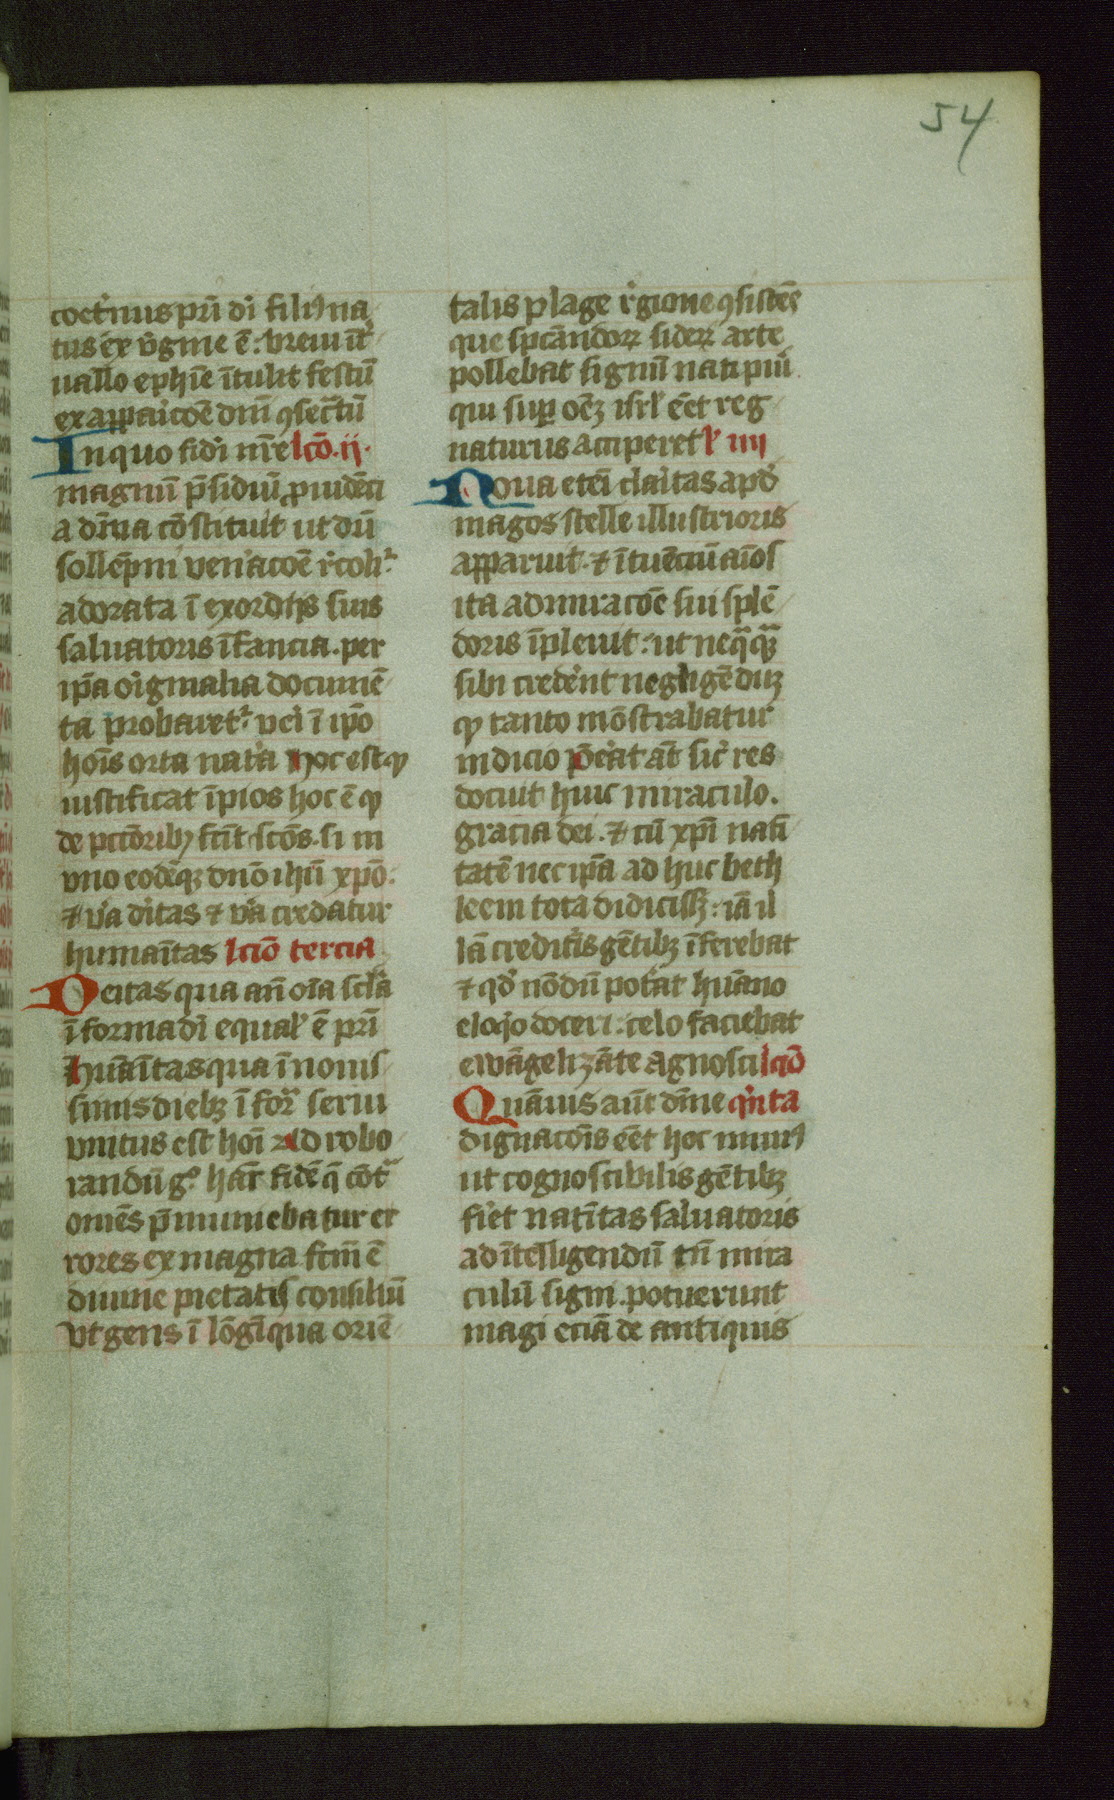 54
coet'nus pri di filiꝰ na
tus ex v'gine ē: breui it'
uallo ephīe ītulit festū
ex apparicōe dnī ꝯsec̄tū
In quo fidi nr̄e lcō. ij.
magnū p̄sidiū ꝓuidēci
a diuina cōstituit ut dū
sollēpni ven'acōe r'colit'
adorata ī exordiis suis
saluatoris īfancia. per
ip̄a originalia docume
ta probaret' vei ī ip̄o
hoīs orta nat'a hoc est qͥ
iustificat īpios hoc ē qͥ
de pctōribꝫ fc̄it sc̄os. si in
vno eodēqꝫ dn̄o ih̄u xp̄o:
⁊ v'a d'itas ⁊ v'a credatur
humaītas lciō tercia
Deitas qua an̄ oīa sc̄la
ī forma di equal' ē pr̄i
huāitas qua ī nouis
simis diebꝫ ī for' serui
vnitus est hoī ad robo
randū gͦ hāc fidē q̄ cōtᵃ
omēs p̄muniebatur er
rores ex magna fc̄m ē
diuine pietatis consiliū
vt gens ī lōgīqua oriē
talis plage r'gione ꝯsistēs
que spc̄andoꝝ sideꝝ arte
pollebat signū nati pͥu
qui sup oēꝫ isrl' eēt reg
naturus acciperet l' iiij
Noua eteī claritas apd'
magos stelle illustrioris
apparuit. ⁊ ītuēciū aīos
ita admiracōe sui splē
doris īpleuit: ut neqᵃqᵃ
sibi crederēt negligēdūꝫ
qͥ tanto mōstrabatur
indicio p̄erat āt sic' res
docuit huic miraculo.
gracia dei. ⁊ cū xp̄i nati
tatē nec ip̄a ad huc beth
leem tota didicissꝫ: iā il
lā creditis gētibꝫ īferebat
⁊ qd' nōdū pot'at huāno
eloqͥo doceri: celo faciebat
ewāgelizāte agnosci lcio
Quāuis aūt dīne qͥnta
dignacōis eēt hoc munꝰ
ut cognoscibilis gētibꝫ
fi'et natītas saluatoris
ad ītelligendū tn̄ mira
culū signi. potuerunt
magi eciā de antiquis